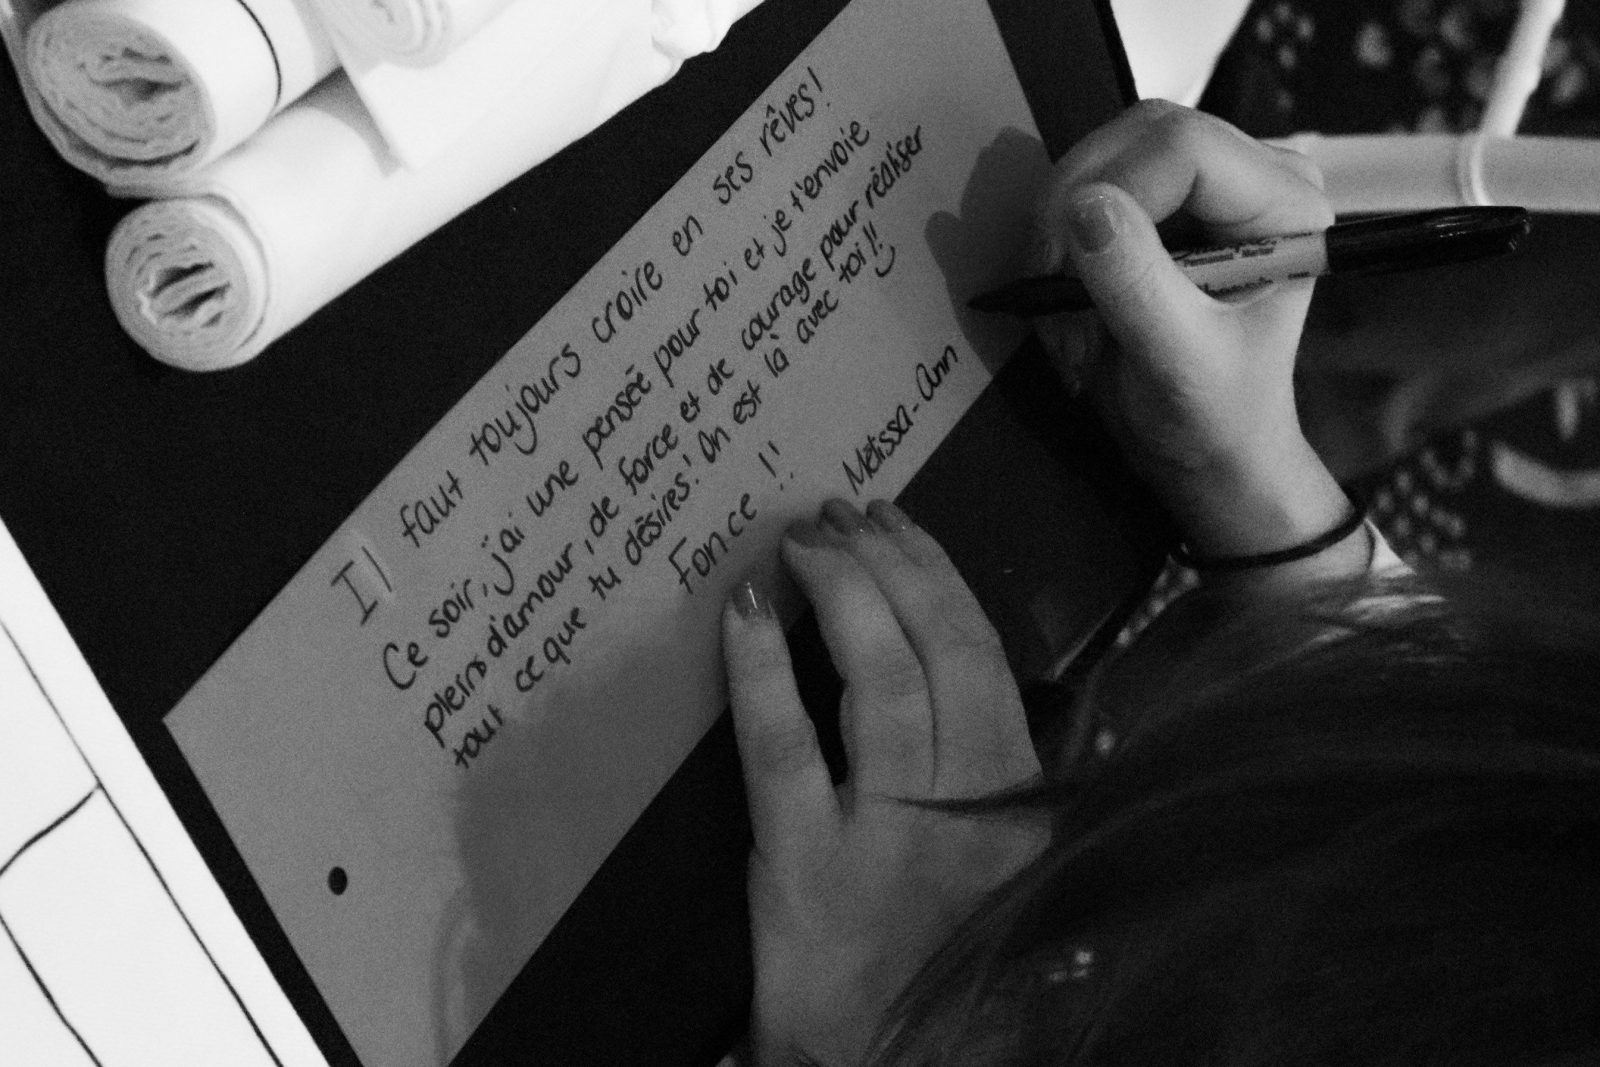 Il faut toujours croire en ses rêves!
Ce soir, j'ai une pensée pour toi et je t'envoie
pleins d'amour, de force et de courage pour réaliser
tout ce que tu désires! On est là avec toi!!
Fonce !!
Mélissa-Ann
Permanent Marker